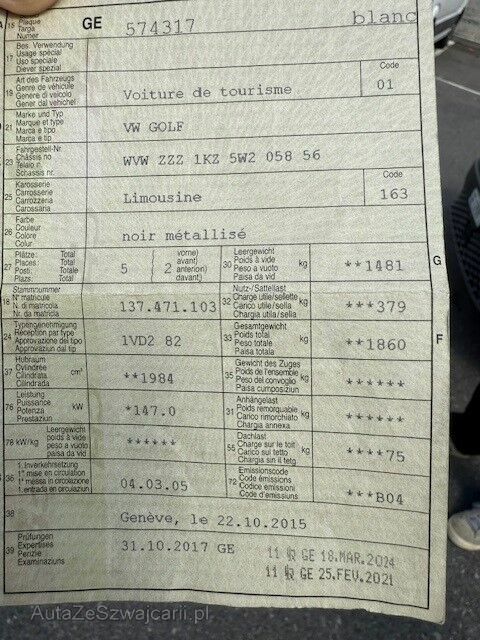 15 Plaque GE 574317 blanc
Targa
Numer
Bes. Verwendung
17 Usage spécial
Uso speciale
Diever spezial
Art des Fahrzeugs Code
19 Genre de véhicule Voiture de tourisme 01
Genere di veicolo
Gener dal vehichel
Marke und Typ
21 Marque et type VW GOLF
Marca e tipo
Marca e tip
Fahrgestell-Nr.
23 Châssis no WVW ZZZ 1KZ 5W2 058 56
Telaio n.
Schassis nr.
Karosserie Code
25 Carrosserie Limousine 163
Carrozzeria
Carossaria
Farbe
26 Couleur noir métallisé
Colore
Colur
Plätze: Total vorne) Leergewicht G
27 Places: Total 5 ( 2 avant) 30 Poids à vide kg **1481
Posti: Totale anteriori) Peso a vuoto
Plazs: Total davant) Paisa da vid
Stammnummer Nutz-/Sattellast
18 N° matricule 137.471.103 32 Charge utile/sellette kg ***379
N. di matricola Carico utile/sella
Nr. da matricla Chargia utila/sella
Typengenehmigung Gesamtgewicht F
24 Réception par type 1VD2 82 33 Poids total kg **1860
Approvazione del tipo Peso totale
Approvaziun dal tip Paisa totala
Hubraum Gewicht des Zuges
37 Cylindrée cm³ **1984 35 Poids de l'ensemble kg ******
Cilindrata Peso del convoglio
Cilindrada Paisa cumposiziun
Leistung Anhängelast
76 Puissance kW *147.0 31 Poids remorquable kg ******
Potenza Carico rimorchiato
Prestaziun Chargia annexa
Leergewicht Dachlast
78 kW/kg poids à vide ****** 55 Charge sur le toit kg ****75
peso a vuoto Carico sul tetto
paisa da vid Chargia sin il tetg
1. Inverkehrsetzung Emissionscode
36 1re mise en circulation 04.03.05 72 Code émissions ***B04
1a messa in circolazione Codice emissioni
1. entrada en circulaziun Code d'emissiuns
38 Genève, le 22.10.2015
Prüfungen
39 Expertises 31.10.2017 GE 11 GE 18.MAR.2024
Perizie 11 GE 25.FEV.2021
Examinaziuns
AutaZeSzwajcarii.pl